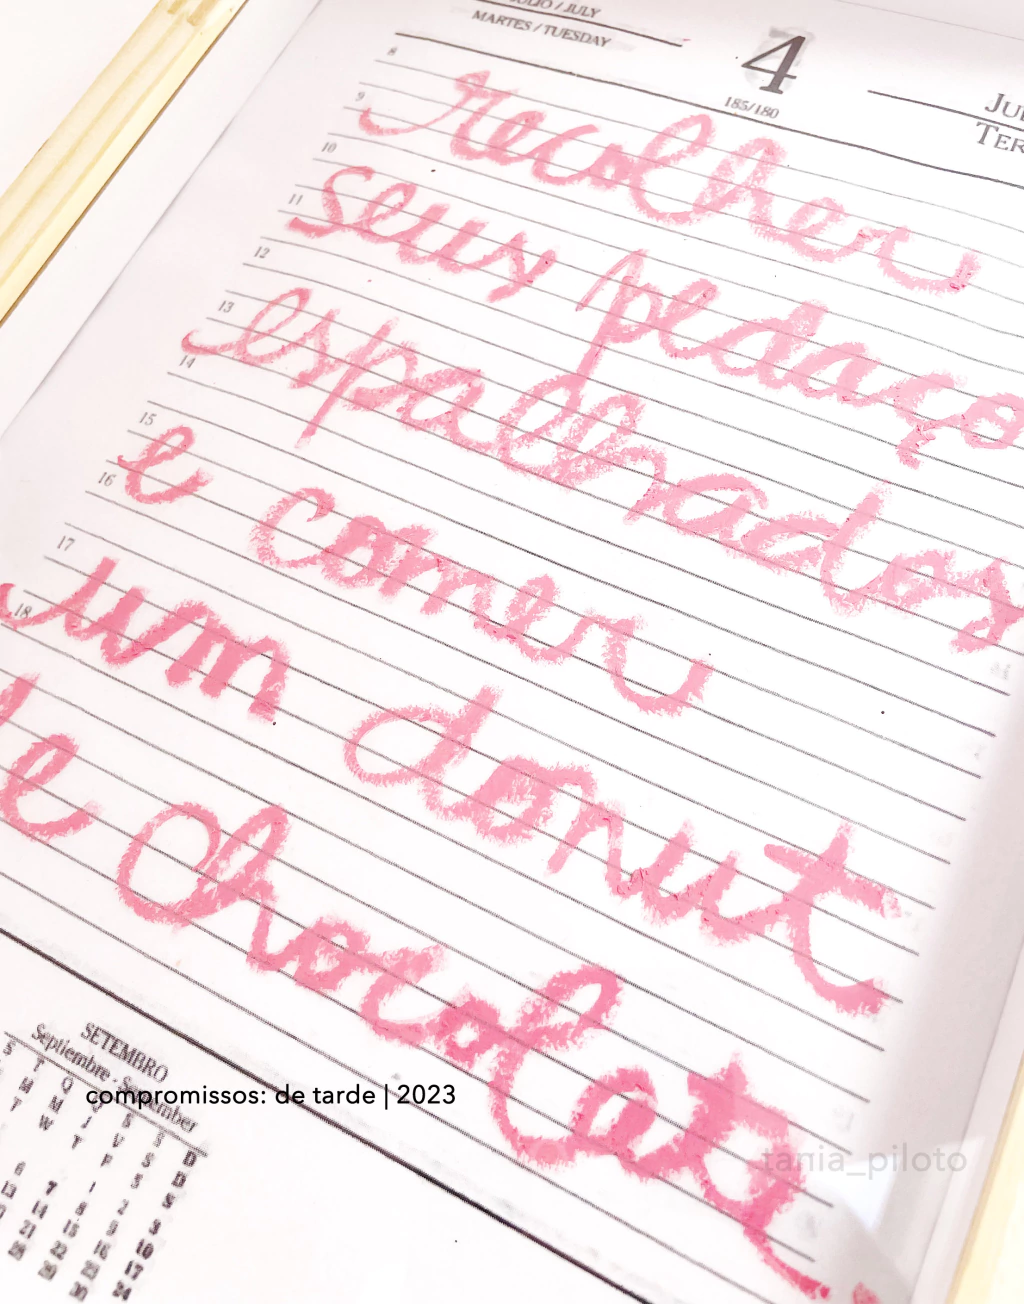 JULIO / JULY
MARTES / TUESDAY
4
185/180
TER
8
9
10
11
12
13
14
15
16
17
18
recolher
seus pedaço
espalhados
e comer
um donut
de chocolat
SETEMBRO
Septiembre - September
S T Q Q S S D
M M J V S D
T W T F S S
compromissos: de tarde | 2023
tania_piloto